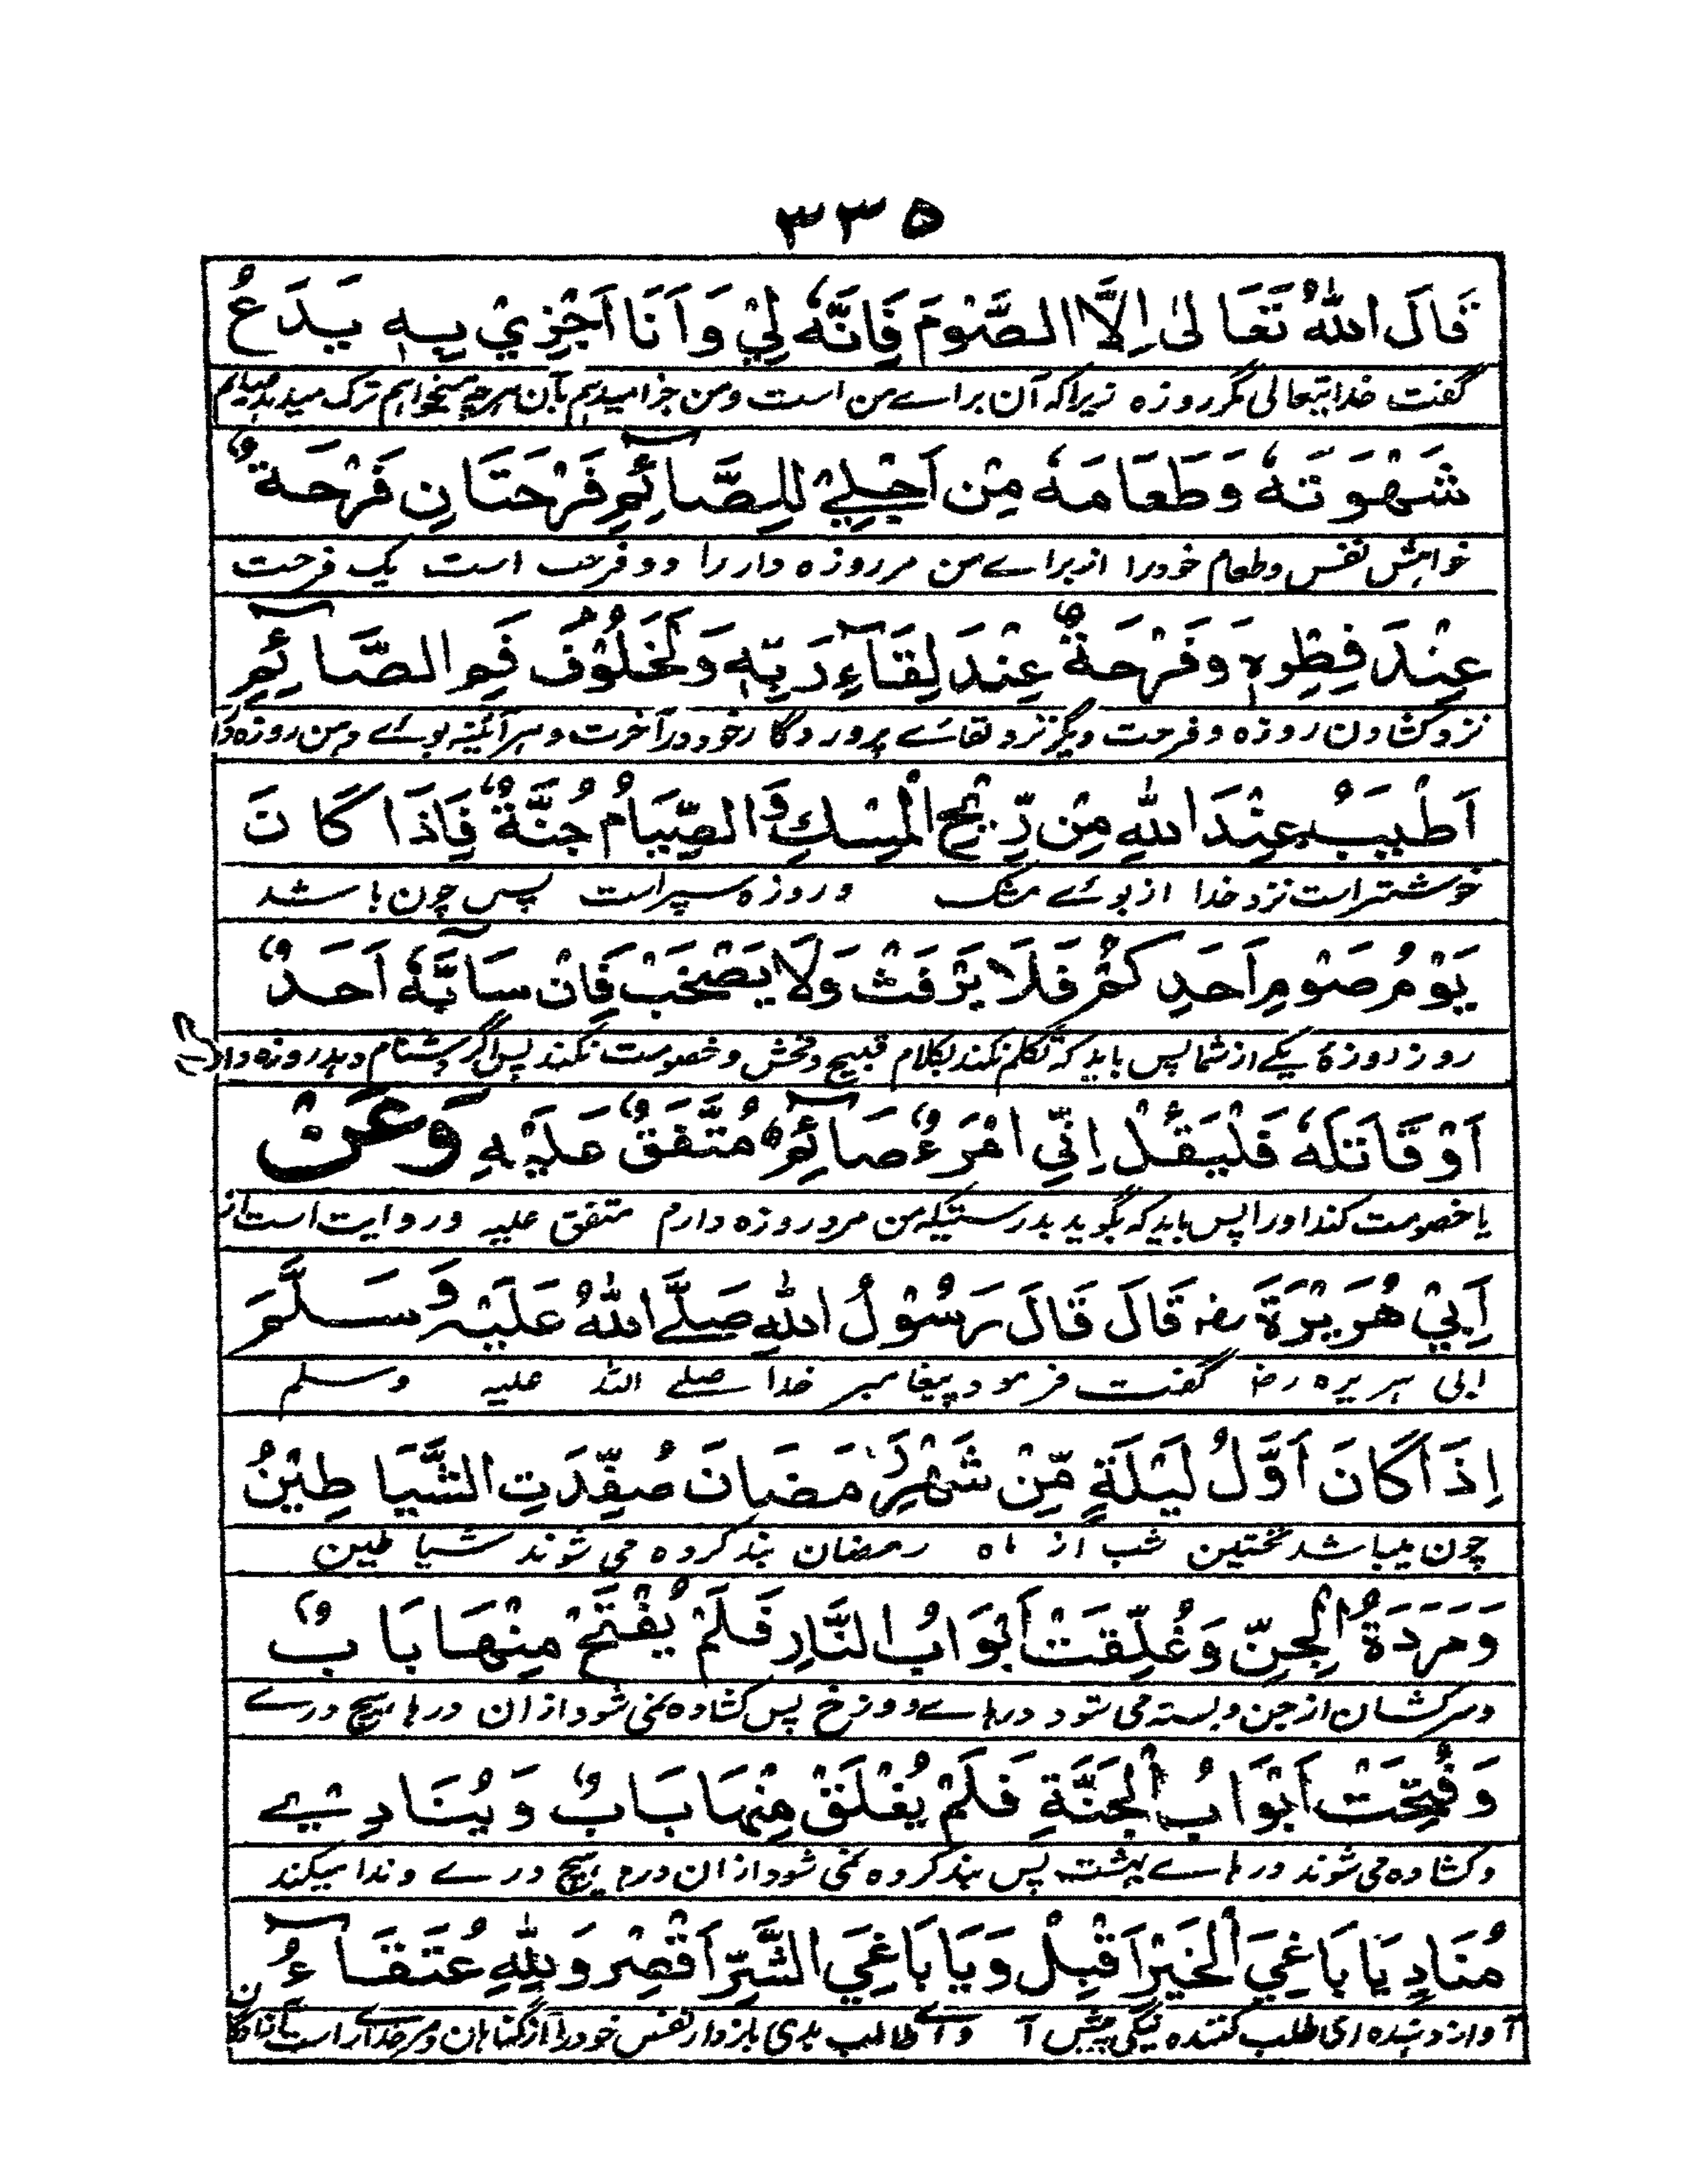 ۳۳۵
قَالَ اللهُ تَعَالىٰ اِلَّا الصَّوْمَ فَاِنَّهٗ لِيْ وَ اَنَا اَجْزِيْ بِهٖ يَدَعُ
گفت خدایتعالی مگر روزه زیرا که آن براے من است و من جزا میدهم بآن ترک میدهد
شَهْوَتَهٗ وَطَعَامَهٗ مِنْ اَجْلِيْ لِلصَّآئِمِ فَرْحَتَانِ فَرْحَةٌ
خواهش نفس وطعام خود را از براے من مر روزه دار را دو فرحت است یک فرحت
عِنْدَ فِطْرِهٖ وَفَرْحَةٌ عِنْدَ لِقَآءِ رَبِّهٖ وَلَخَلُوْفُ فَمِ الصَّآئِمِ
نزد کشادن روزه و فرحت دیگر نزد لقاے پروردگار خود در آخرت و هر آئینه بوے دهن روزه دار
اَطْيَبُ عِنْدَ اللهِ مِنْ رِّيْحِ الْمِسْكِ وَالصِّيَامُ جُنَّةٌ فَاِذَا كَانَ
خوشتر است نزد خدا از بوئے مشک و روزه سپر است پس چون باشد
يَوْمُ صَوْمِ اَحَدِكُمْ فَلَا يَرْفَثْ وَلَا يَصْخَبْ فَاِنْ سَآبَّهٗ اَحَدٌ
روز روزهٔ یکے از شما پس باید که تکلم نکند بکلام قبیح و فحش و خصومت نکند پس اگر دشنام دهد روزه دار
اَوْ قَاتَلَهٗ فَلْيَقُلْ اِنِّي امْرَءٌ صَآئِمٌ مُتَّفَقٌ عَلَيْهِ وَعَنْ
یا خصومت کند او را پس باید که بگوید بدرستیکه من مرد روزه دارم متفق علیه و روایت است از
اَبِيْ هُرَيْرَةَ رضه قَالَ قَالَ رَسُوْلُ اللهِ صَلَّے اللهُ عَلَيْهِ وَسَلَّمَ
ابی هریره رضا گفت فرمود پیغامبر خدا صلے الله علیه وسلم
اِذَا كَانَ اَوَّلُ لَيْلَةٍ مِّنْ شَهْرِ رَمَضَانَ صُفِّدَتِ الشَّيَاطِيْنُ
چون میباشد نخستین شب از ماه رمضان بند کرده می شوند شیاطین
وَمَرَدَةُ الْجِنِّ وَغُلِّقَتْ اَبْوَابُ النَّارِ فَلَمْ يُفْتَحْ مِنْهَا بَابٌ
و سرکشان از جن و بسته می شود درهاے دوزخ پس کشاده نمی شود از ان درها هیچ درے
وَفُتِحَتْ اَبْوَابُ الْجَنَّةِ فَلَمْ يُغْلَقْ مِنْهَا بَابٌ وَيُنَادِيْ
و کشاده می شوند درهاے بهشت پس بند کرده نمی شود از ان درها هیچ درے و ندا میکند
مُنَادٍ يَا بَاغِيَ الْخَيْرِ اَقْبِلْ وَيَا بَاغِيَ الشَّرِّ اَقْصِرْ وَلِلّٰهِ عُتَقَآءُ
آواز دهنده ای طلب کننده نیکی پیش آ و اے طالب بدی باز دار نفس خود را از گناهان و مر خداے راست